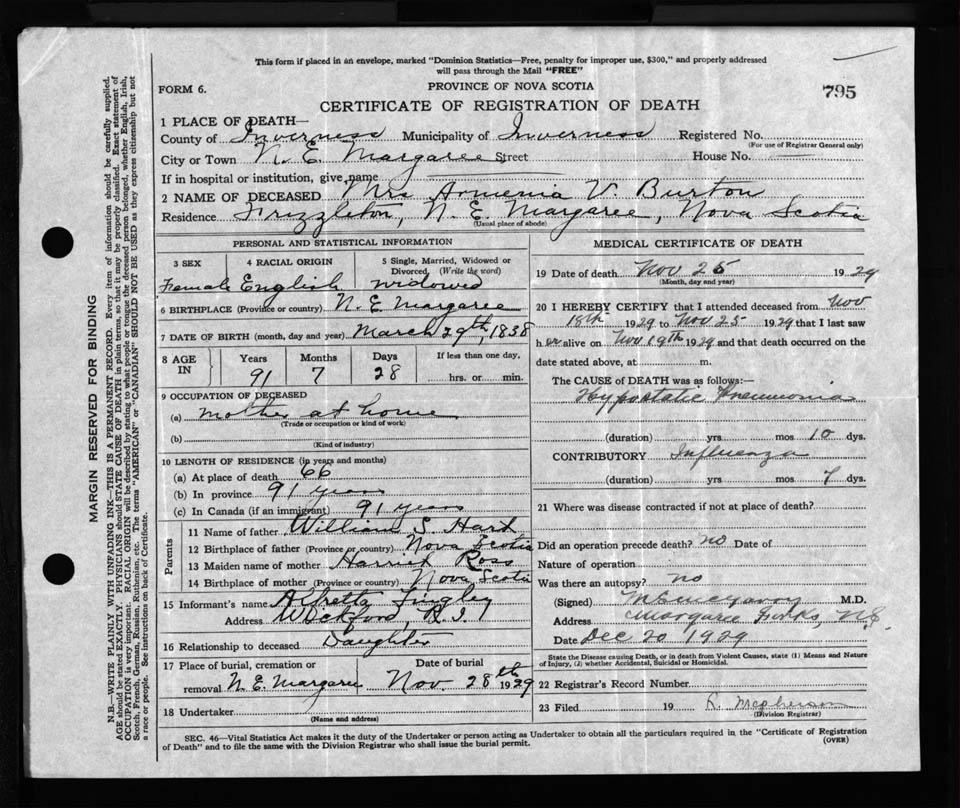 This form if placed in an envelope, marked "Dominion Statistics—Free, penalty for improper use, $300," and properly addressed
will pass through the Mail "FREE"
795
FORM 6.
PROVINCE OF NOVA SCOTIA
CERTIFICATE OF REGISTRATION OF DEATH
1 PLACE OF DEATH—
County of Inverness Municipality of Inverness Registered No.
(For use of Registrar General only)
City or Town N. E. Margaree Street House No. —
If in hospital or institution, give name
2 NAME OF DECEASED Mrs Armenia V. Burton
Residence Frizzleton, N. E. Margaree, Nova Scotia
(Usual place of abode)
PERSONAL AND STATISTICAL INFORMATION
3 SEX 4 RACIAL ORIGIN 5 Single, Married, Widowed or
Divorced, (Write the word)
Female English widowed
6 BIRTHPLACE (Province or country) N. E Margaree
7 DATE OF BIRTH (month, day and year) March 29th, 1838
8 AGE IN Years Months Days If less than one day,
91 7 28 hrs. or min.
9 OCCUPATION OF DECEASED
(a) mother at home
(Trade or occupation or kind of work)
(b)
(Kind of industry)
10 LENGTH OF RESIDENCE (in years and months)
(a) At place of death 66
(b) In province 91 years
(c) In Canada (if an immigrant) 91 years
Parents
11 Name of father William S. Hart
12 Birthplace of father (Province or country) Nova Scotia
13 Maiden name of mother Harriet Ross
14 Birthplace of mother (Province or country) Nova Scotia
15 Informant's name Alfretta Tingley
Address Wickford, R. I.
16 Relationship to deceased Daughter
17 Place of burial, cremation or Date of burial
removal N. E. Margaree Nov. 28th 1929
18 Undertaker
(Name and address)
MEDICAL CERTIFICATE OF DEATH
19 Date of death Nov 25 1929
(Month, day and year)
20 I HEREBY CERTIFY that I attended deceased from Nov
18th 1929 to Nov 25 1929 that I last saw
her alive on Nov 19th 1929 and that death occurred on the
date stated above, at m.
The CAUSE OF DEATH was as follows:—
Hypostatic Pneumonia
(duration) yrs mos 10 dys.
CONTRIBUTORY Influenza
(duration) yrs mos 7 dys.
21 Where was disease contracted if not at place of death?
Did an operation precede death? no Date of
Nature of operation
Was there an autopsy? no
(Signed) M.D.
Address Margaree Forks, N.S.
Date Dec 20 1929
State the Disease causing Death, or in death from Violent Causes, state (1) Means and Nature
of Injury, (2) whether Accidental, Suicidal or Homicidal.
22 Registrar's Record Number
23 Filed 19 R. McPherson
(Division Registrar)
SEC. 46—Vital Statistics Act makes it duty of the Undertaker or person acting as Undertaker to obtain all the particulars required in the "Certificate of Registration
of Death" and to file the same with the Division Registrar who shall issue the burial permit.
(OVER)
MARGIN RESERVED FOR BINDING
N.B—WRITE PLAINLY WITH UNFADING INK—THIS IS A PERMANENT RECORD. Every item of information should be carefully supplied.
AGE should be stated EXACTLY. PHYSICIANS should STATE CAUSE OF DEATH in plain terms, so that it may be properly classified. Exact statement of
OCCUPATION is very important. RACIAL ORIGIN will be described by stating to what people or tongue the deceased person belonged, whether English, Irish,
Scotch, French, German, Russian, Ruthenian, etc. The terms "AMERICAN" or "CANADIAN" SHOULD NOT BE USED as they express citizenship but not
a race or people. See instructions on back of Certificate.